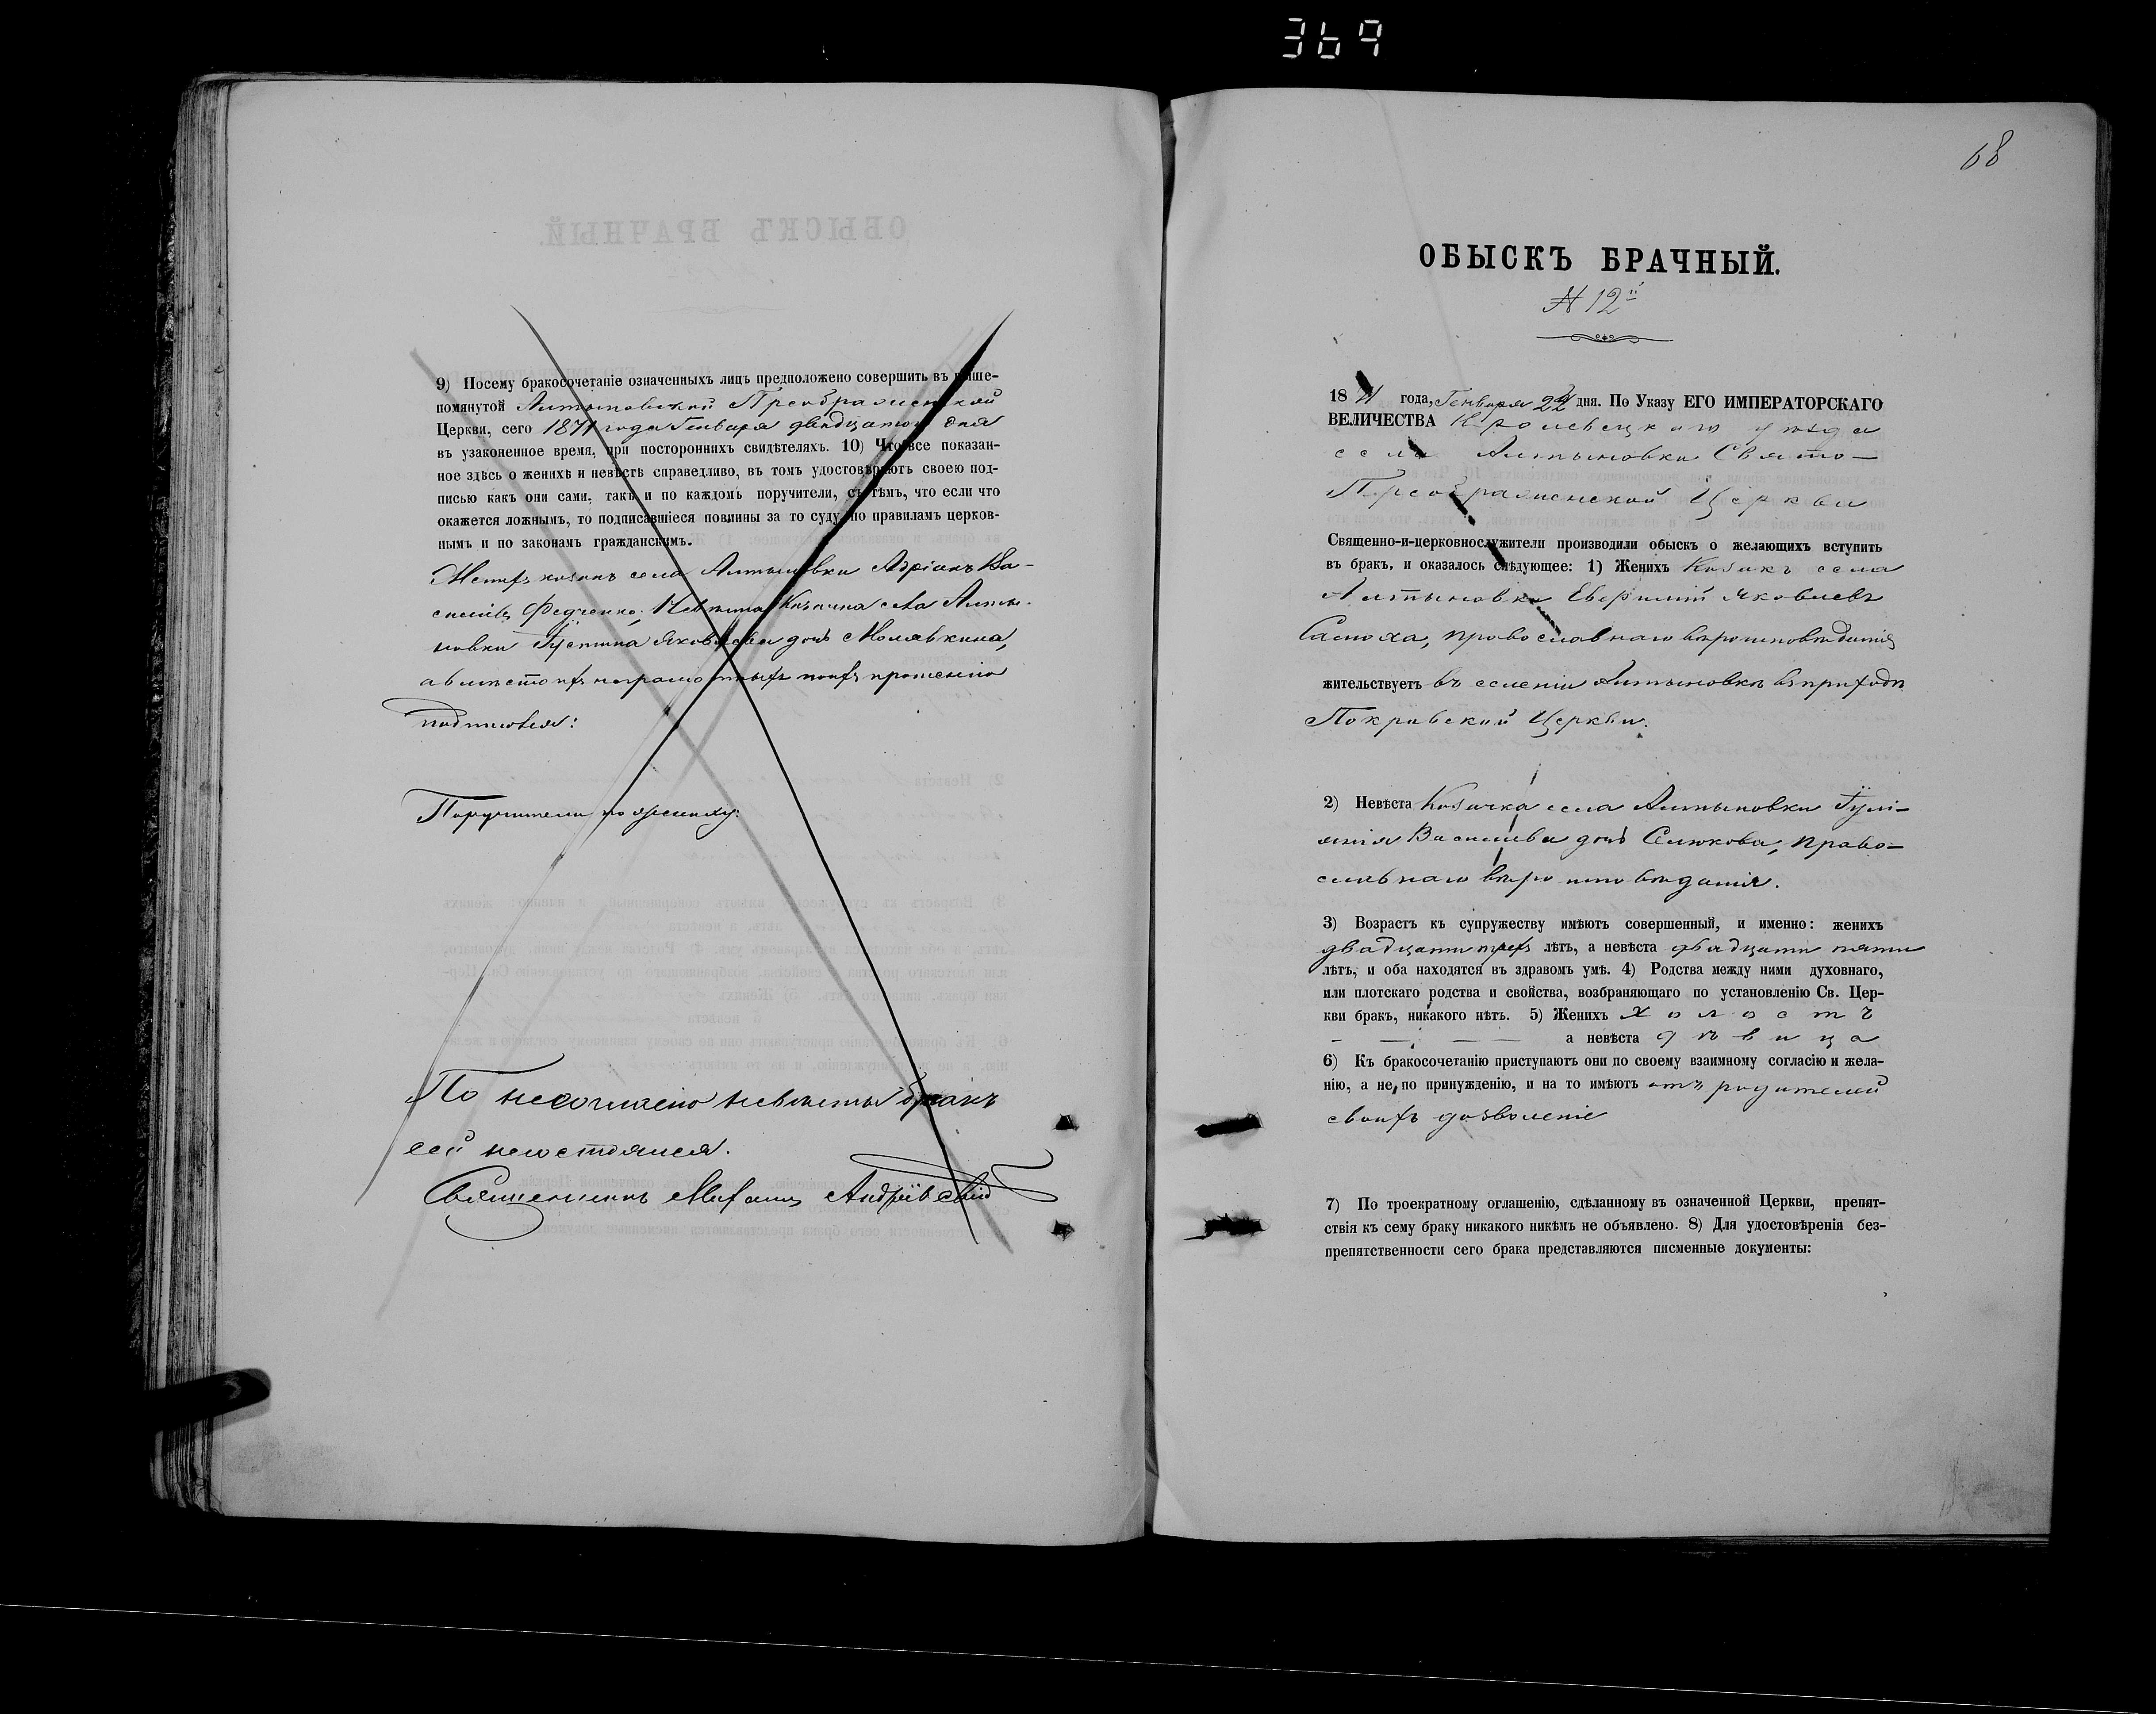 369
9) Посему бракосочетаніе означенныхъ лицъ предположено совершить въ выше-
помянутой Алтыновской Преображенской
Церкви, сего 1871 года Генваря двадцатого дня
въ узаконенное время, при постороннихъ свидѣтеляхъ. 10) Что все показан-
ное здѣсь о женихѣ и невѣстѣ справедливо, въ томъ удостовѣряютъ своею под-
писью какъ они сами, такъ и по каждомъ поручители, съ тѣмъ, что если что
окажется ложнымъ, то подписавшіеся повинны за то суду по правиламъ церков-
нымъ и по законамъ гражданскимъ.
Женихъ козакъ села Алтыновки Адріанъ Ва-
силіевъ Федченко, Невѣста Козачка села Алты-
новки Іустина Яковлева дочь Молявкина,
а вмѣсто ихъ неграмотныхъ по ихъ прошенію
подписался:
Поручители по жениху:
По несогласію невѣсты бракъ
сей несостоялся.
Священникъ Михаилъ Андріевскій
68
ОБЫСКЪ БРАЧНЫЙ.
№ 12й
1871 года, Генваря 22 дня. По Указу ЕГО ИМПЕРАТОРСКАГО
ВЕЛИЧЕСТВА Кролевецкаго уѣзда
села Алтыновки Свято-
Преображенской Церкви
Священно-и-церковнослужители производили обыскъ о желающихъ вступить
въ бракъ, и оказалось слѣдующее: 1) Женихъ Козакъ села
Алтыновки Яковлевъ
православнаго вѣроисповѣданія
жительствуетъ въ селеніи Алтыновкѣ въ приходѣ
Покровской Церкви.
2) Невѣста Козачка села Алтыновки Іулі-
янія Василіева дочь Селюкова, право-
славнаго вѣроисповѣданія.
3) Возрастъ къ супружеству имѣютъ совершенный, и именно: женихъ
двадцати трехъ лѣтъ, а невѣста двадцати пяти
лѣтъ, и оба находятся въ здравомъ умѣ. 4) Родства между ними духовнаго,
или плотскаго родства и свойства, возбраняющаго по установленію Св. Цер-
кви бракъ, никакого нѣтъ. 5) Женихъ холостъ
а невѣста дѣвица
6) Къ бракосочетанію приступаютъ они по своему взаимному согласію и жела-
нію, а не по принужденію, и на то имѣютъ отъ родителей
своихъ дозволеніе
7) По троекратному оглашенію, сдѣланному въ означенной Церкви, препят-
ствія къ сему браку никакого никѣмъ не объявлено. 8) Для удостовѣренія без-
препятственности сего брака представляются писменные документы: